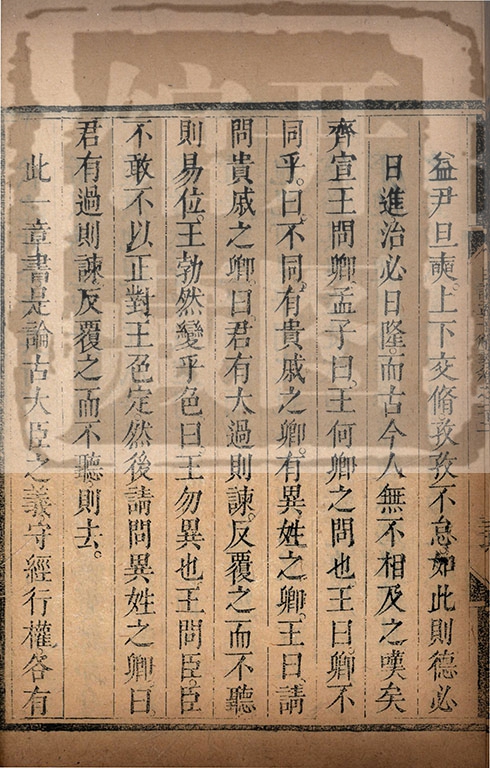 益尹旦奭。上下交脩孜孜不怠如此則德必
日進治必日隆。而古今人無不相及之嘆矣
齊宣王問卿孟子曰。王何卿之問也。王曰。卿不
同乎。曰。不同。有貴戚之卿。有異姓之卿。王曰。請
問貴戚之卿。曰。君有大過則諫。反覆之而不聽
則易位。王勃然變乎色曰王勿異也。王問臣。臣
不敢不以正對王色定然後請問異姓之卿曰。
君有過則諫反覆之而不聽則去。
此一章書是論古大臣之義守經行權各有